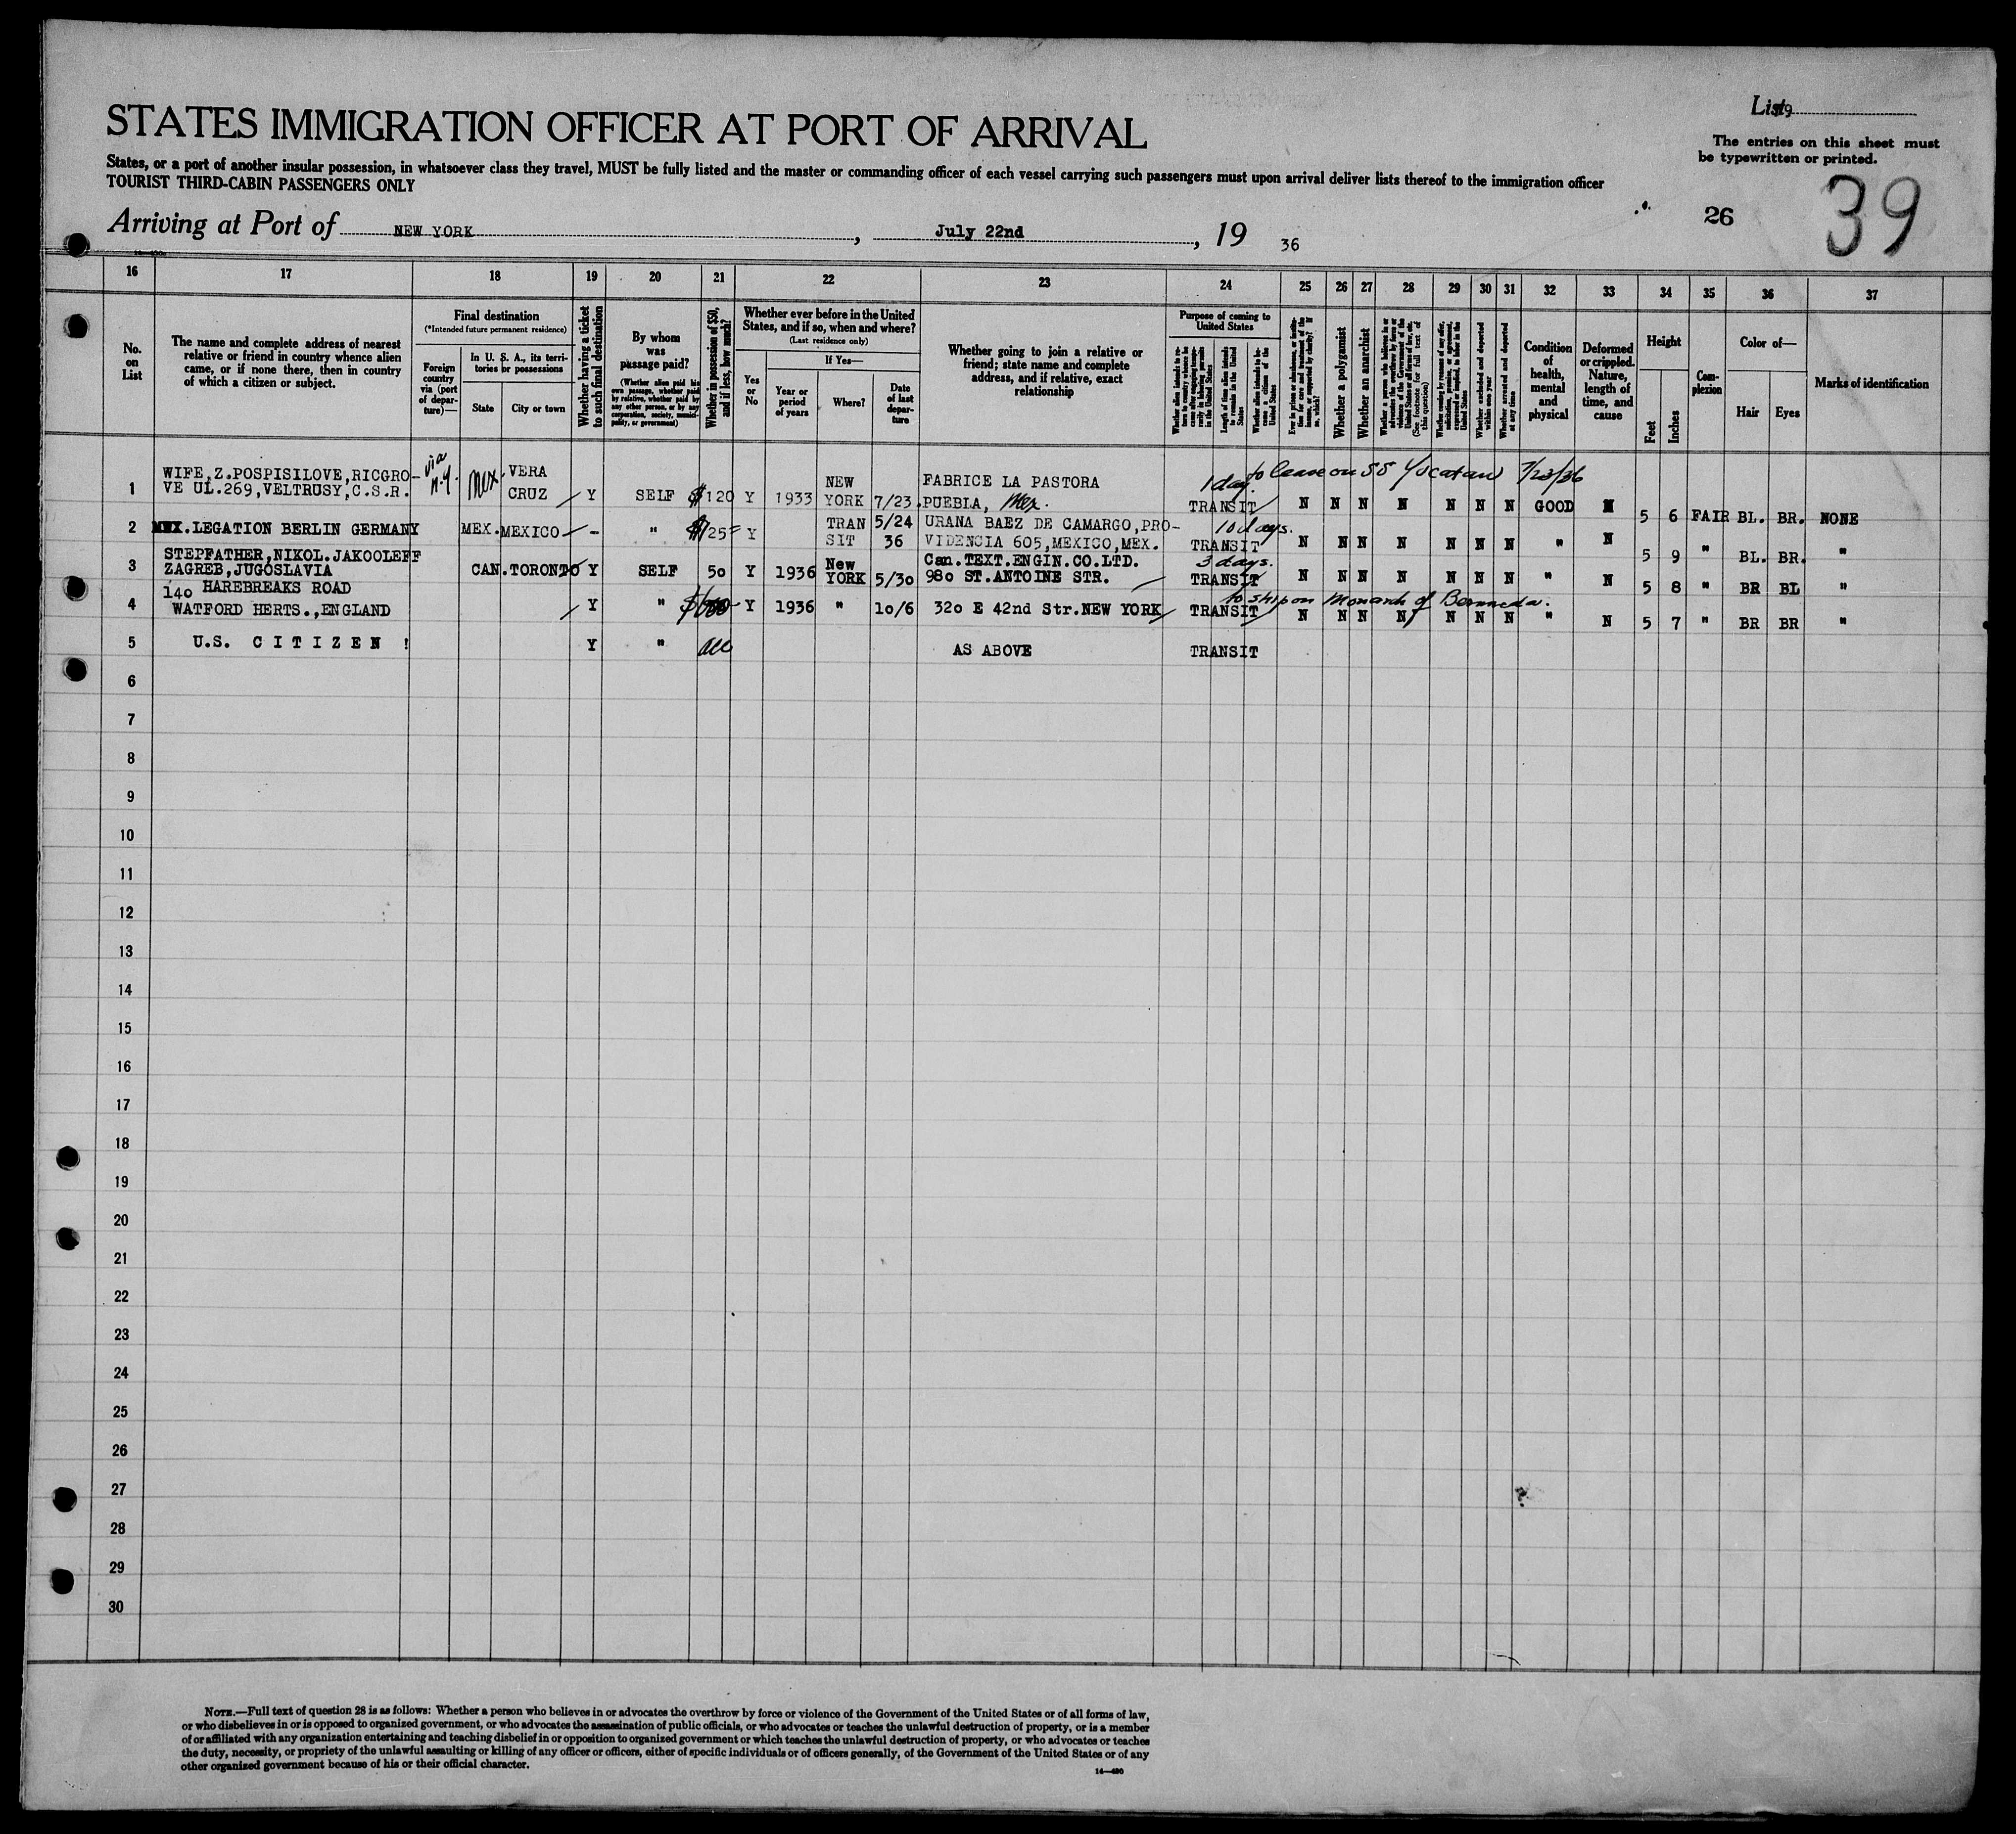 List 19
The entries on this sheet must
be typewritten or printed.
STATES IMMIGRATION OFFICER AT PORT OF ARRIVAL
States, or a port of another insular possession, in whatsoever class they travel, MUST be fully listed and the master or commanding officer of each vessel carrying such passengers must upon arrival deliver lists thereof to the immigration officer
TOURIST THIRD-CABIN PASSENGERS ONLY
26
39
Arriving at Port of NEW YORK, July 22nd, 19 36
16 17 18 19 20 21 22 23 24 25 26 27 28 29 30 31 32 33 34 35 36 37
No. on List
The name and complete address of nearest
relative or friend in country whence alien
came, or if none there, then in country
of which a citizen or subject.
Final destination
(*Intended future permanent residence)
Foreign country via (port of departure)—
In U. S. A., its territories or possessions
State
City or town
Whether having a ticket to such final destination
By whom was passage paid?
(Whether alien paid his own passage, whether paid by relative, whether paid by any other person, or by any corporation, society, municipality, or government)
Whether in possession of $50, and if less, how much?
Whether ever before in the United
States, and if so, when and where?
(Last residence only)
Yes or No
If Yes—
Year or period of years
Where?
Date of last departure
Whether going to join a relative or
friend; state name and complete
address, and if relative, exact
relationship
Purpose of coming to
United States
Length of time alien intends to remain in the United States
Whether alien intends to become a citizen of the United States
Whether a polygamist
Whether an anarchist
(See footnote for full text of this question)
Whether excluded and deported within one year
Whether arrested and deported at any time
Condition of health, mental and physical
Deformed or crippled. Nature, length of time, and cause
Height
Feet
Inches
Complexion
Color of—
Hair
Eyes
Marks of identification
1 WIFE,Z.POSPISILOVE,RICGRO-
VE UL.269,VELTRUSY,C.S.R. via N.Y. Mex. VERA CRUZ Y SELF $120 Y 1933 NEW YORK 7/23. FABRICE LA PASTORA
PUEBLA, Mex. 1 day. to leave on SS Yucatan 7/23/36
TRANSIT N N N N N N N GOOD N 5 6 FAIR BL. BR. NONE
2 MEX.LEGATION BERLIN GERMANY MEX. MEXICO - " $125= Y TRAN SIT 5/24 36 URANA BAEZ DE CAMARGO,PRO-
VIDENCIA 605,MEXICO,MEX. 10 days.
TRANSIT N N N N N N N " N 5 9 " BL. BR. "
3 STEPFATHER,NIKOL.JAKOOLEFF
ZAGREB,JUGOSLAVIA CAN. TORONTO Y SELF 50 Y 1936 New YORK 5/30 Can.TEXT.ENGIN.CO.LTD.
980 ST.ANTOINE STR. 3 days.
TRANSIT N N N N N N N " N 5 8 " BR BL "
4 140 HAREBREAKS ROAD
WATFORD HERTS.,ENGLAND Y " Y 1936 " 10/6 320 E 42nd Str.NEW YORK to ship on Monarch of Bermuda.
TRANSIT N N N N N N N " N 5 7 " BR BR "
5 U.S. CITIZEN ! Y " all AS ABOVE TRANSIT
6
7
8
9
10
11
12
13
14
15
16
17
18
19
20
21
22
23
24
25
26
27
28
29
30
NOTE.—Full text of question 28 is as follows: Whether a person who believes in or advocates the overthrow by force or violence of the Government of the United States or of all forms of law,
or who disbelieves in or is opposed to organized government, or who advocates the assassination of public officials, or who advocates or teaches the unlawful destruction of property, or is a member
of or affiliated with any organization entertaining and teaching disbelief in or opposition to organized government or which teaches the unlawful destruction of property, or who advocates or teaches
the duty, necessity, or propriety of the unlawful assaulting or killing of any officer or officers, either of specific individuals or of officers generally, of the Government of the United States or of any
other organized government because of his or their official character.